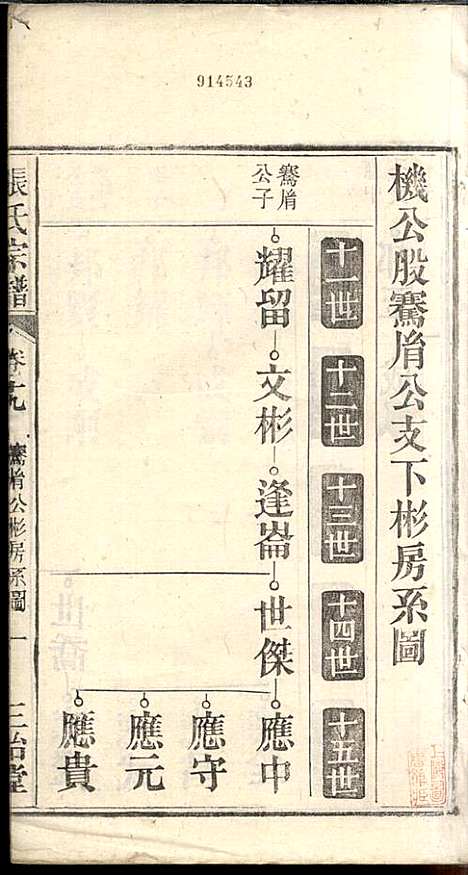 914543
機公股騫㡹公支下彬房系圖
十一世
十二世
十三世
十四世
十五世
公子
耀留
文彬
逢崙
世傑
應中
應守
應元
應貴
張氏宗譜
卷十九
公彬房系圖
一
三治堂